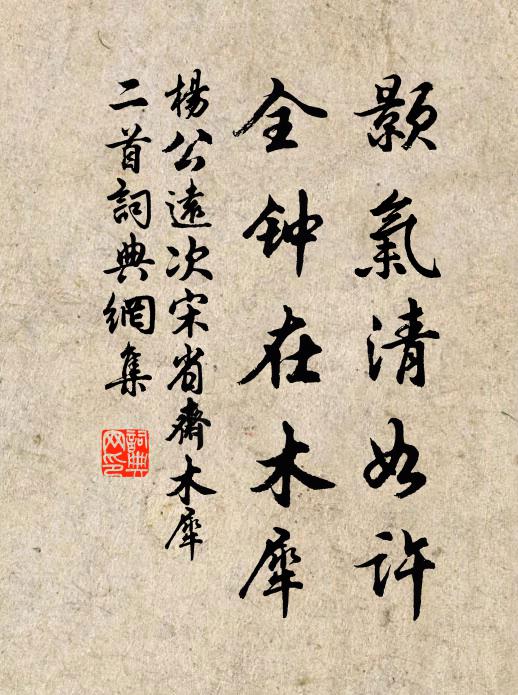 顥氣清如許
全钟在木犀
楊公遠次宋省齋木犀
二首詞典網集
詞典網印